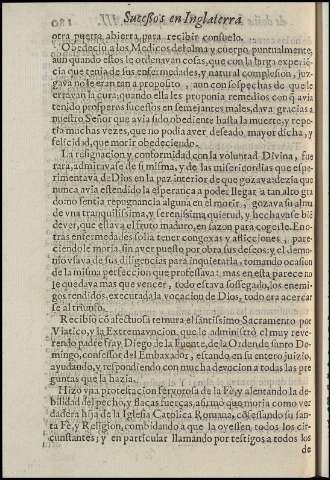 Sucessos en Inglaterra
otra puerta abierta para recibir consuelo.
Obedeciò a los Medicos del alma y cuerpo, puntualmente,
aun quando estos le ordenavan cosas, que con la larga experiē
cia que tenia de sus enfermedades, y natural complesion, juz
gava no le eran tan a proposito, aun con sospechas de que le
erravan la cura; quando ella les proponia remedios con q̃ avia
tenido prosperos sucessos en semejantes males, dava gracias a
nuestro Señor que avia sido obediente hasta la muerte, y repe
tia muchas vezes, que no podia aver deseado mayor dicha, y
felicidad, que morir obedeciendo.
La resignacion y conformidad con la voluntad Divina, fue
rara, admiravase de si misma, y de las misericordias que espe-
rimentava de Dios en la paz interior de que gozava, dezia que
nunca avia estendido la esperança a poder llegar a tan alto gra
do como sentia repugnancia alguna en el morir, gozava su alma
de vna tranquilissima, y serenissima quietud, y hechavase biē
de ver, que estava el fruto maduro, en sazon para cogerse. En o
tras enfermedades solia tener congoxas y aflicciones, pare-
ciendole moria sin aver puesto por obra sus deseos: y el demo-
nio vsava de sus diligencias para inquietarla, tomando ocasion
de la misma perfeccion que professava: mas en esta parece no
le quedava mas que vencer, todo estava sossegado, los enemi-
gos rendidos, executada la vocacion de Dios, todo era acercar
se al triunfo.
Recibio cõ afectuosa ternura el santissimo Sacramento por
Viatico, y la Extremavncion, que le administrò el muy reve-
rendo padre fray Diego de la Fuente, de la Orden de santo Do-
mingo, confessor del Embaxador, estando en su entero juizio,
ayudando, y respondiendo con mucha devocion a todas las pre
guntas que la hazia.
Hizo vna protestacion fervorosa de la Fè, y alentando la de-
bilidad del pecho, y flacas fuerças, afirmò que moria como ver
dadera hija de la Iglesia Catolica Romana, cõfessando su san-
ta Fè, y Religion, combidando a que la oyessen todos los cir-
cunstantes; y en particular llamando por testigos a todos los
de